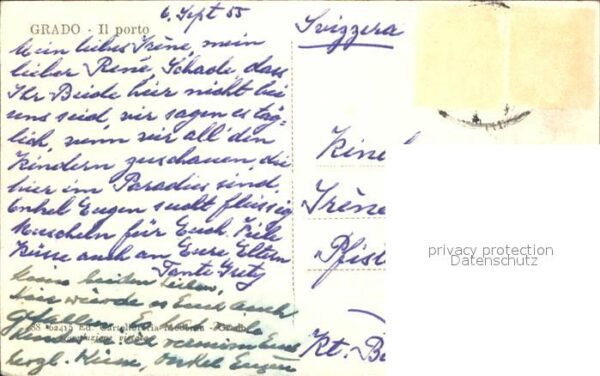 6. Sept 55
GRADO - Il porto
Mein liebes Irène, mein
lieber René, Schade, dass
Ihr Beide hier nicht bei
uns seid, wir sagen es täg-
lich, wenn wir all' den
Kindern zuschauen, die
hier im Paradies sind.
Onkel Eugen sucht fleissig
Muscheln für Euch. Viele
Küsse auch an Eure Eltern
Tante Grety
Meine beiden Lieben,
Hier würde es Euch auch
gefallen. Es hat viele
Kinder
herzl. Küsse, Onkel Eugen
Ed. Cartoleria
Svizzera
Kin
Irène
Pfis
Kt. B
privacy protection
Datenschutz